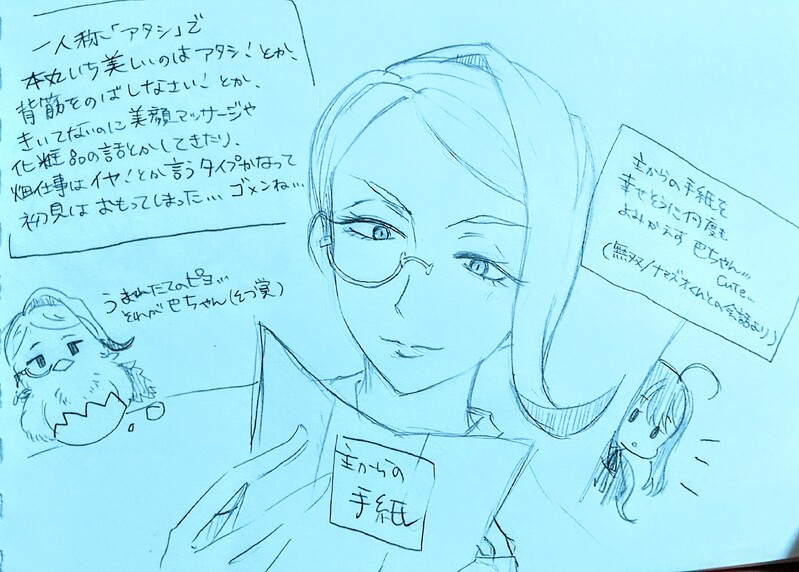 一人称「アタシ」で
本丸いち美しいのはアタシ！とか、
背筋をのばしなさい！とか、
きいてないのに美顔マッサージや
化粧品の話とかしてきたり、
畑仕事はイヤ！とか言うタイプかなって
初見はおもってしまった… ゴメンね…
主からの手紙を
幸せそうに何度も
よみかえす巴ちゃん…
cute…
(無双/ナマズオくんとの会話より)
うまれたてのピヨ…
それが巴ちゃん(そづ覚)
主からの
手紙